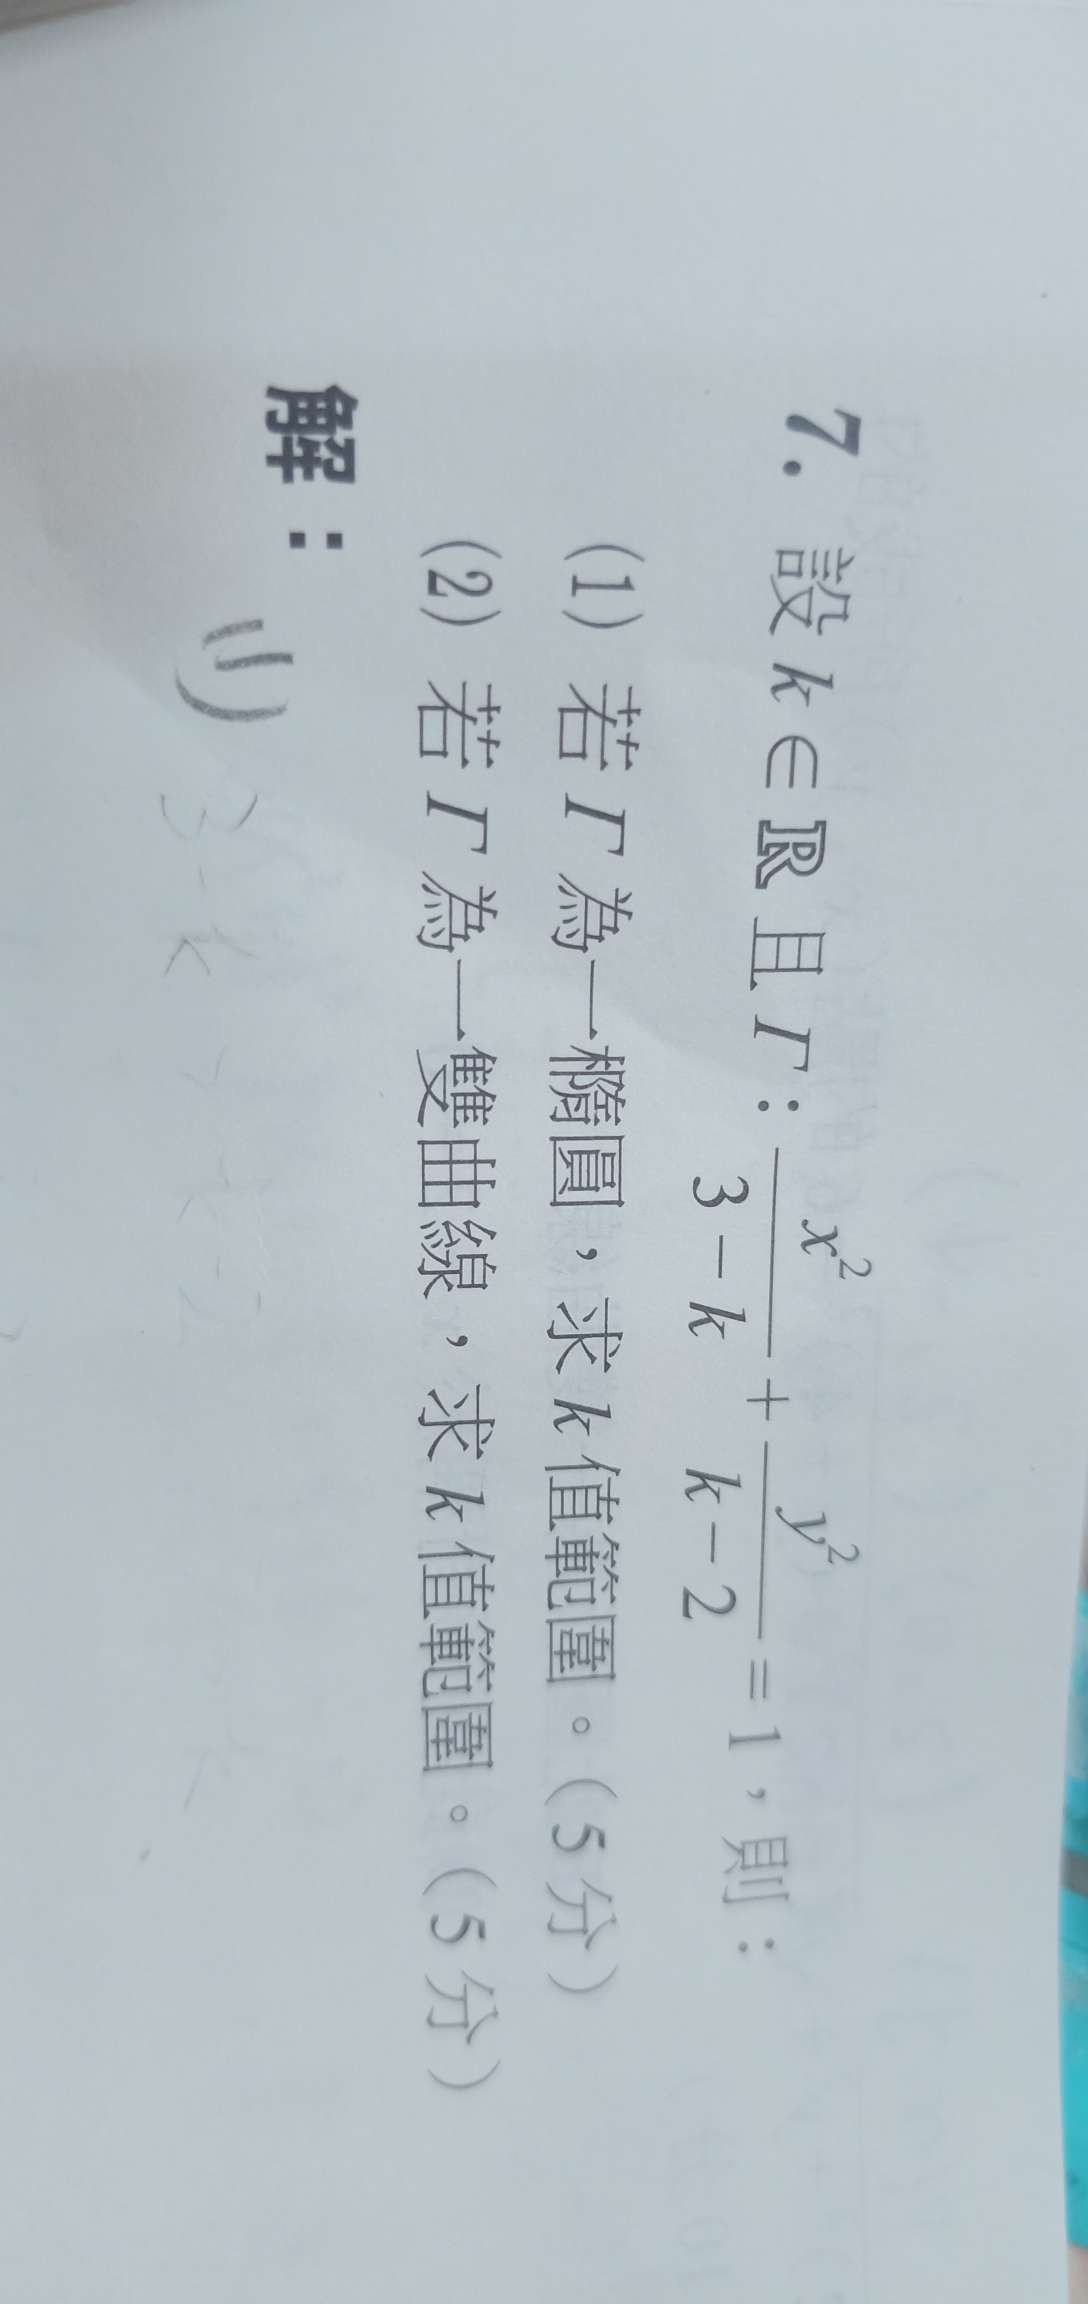 7. 設 k ∈ ℝ 且 Γ : x²/(3-k) + y²/(k-2) = 1，則：
(1) 若 Γ 為一橢圓，求 k 值範圍。(5 分)
(2) 若 Γ 為一雙曲線，求 k 值範圍。(5 分)
解：
(1) 3-k